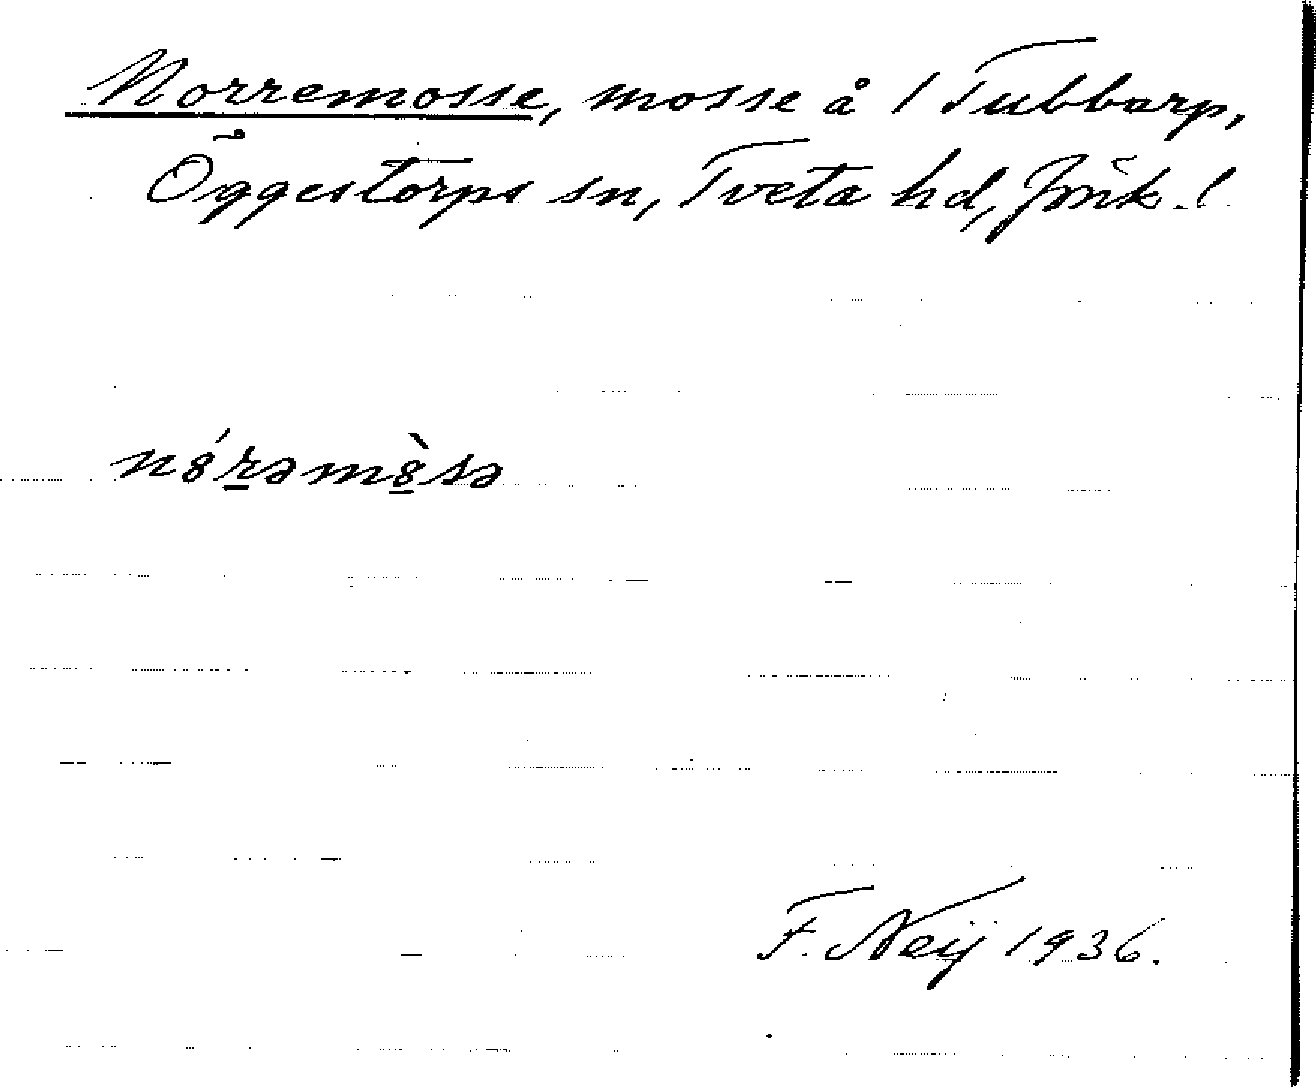 Norremosse, mosse å 1 Tubbarp,
Öggestorps sn, Tveta hd, Jönk. l.
n8́rəm8̀sə
F. Neij 1936.